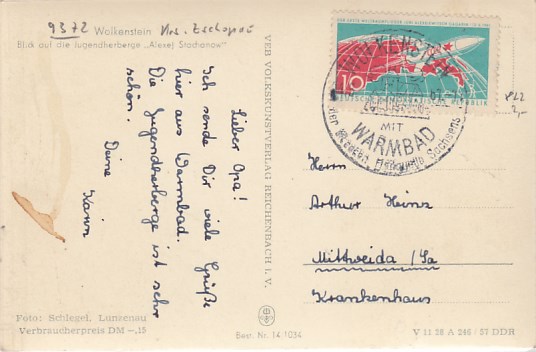 9372
Wolkenstein Krs. Zschopau
Blick auf die Jugendherberge „Alexej Stachanow"
Lieber Opa!
Ich sende Dir viele Grüße
hier aus Warmbad.
Die Jugendherberge ist sehr
schön.
Deine
Karin
VEB VOLKSKUNSTVERLAG REICHENBACH i. V.
10
DEUTSCHE DEMOKRATISCHE REPUBLIK
WOLKENSTEIN
MIT
WARMBAD
Sachsens
Herrn
Arthur Heinz
Mittweida /Sa
Krankenhaus
Foto: Schlegel, Lunzenau
Verbraucherpreis DM –.15
Best. Nr. 14 1034
V 11 28 A 246 / 57 DDR